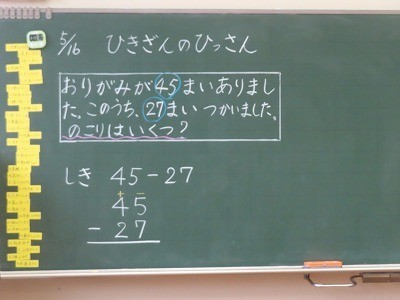 5/16 ひきざんのひっさん
おりがみが45まいありまし
た。このうち、27まいつかいました。
のこりはいくつ?
しき 45-27
45
-27